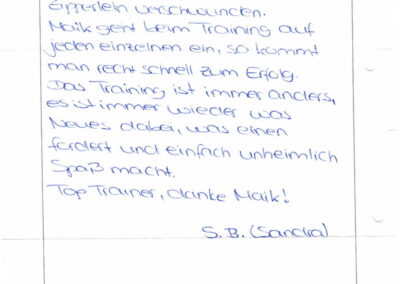 Zipperlein verschwunden.
Maik geht beim Training auf
jeden einzelnen ein, so kommt
man recht schnell zum Erfolg.
Das Training ist immer anders,
es ist immer wieder was
Neues dabei, was einen
fordert und einfach unheimlich
Spaß macht.
Top Trainer, danke Maik!
S.B. (Sandra)